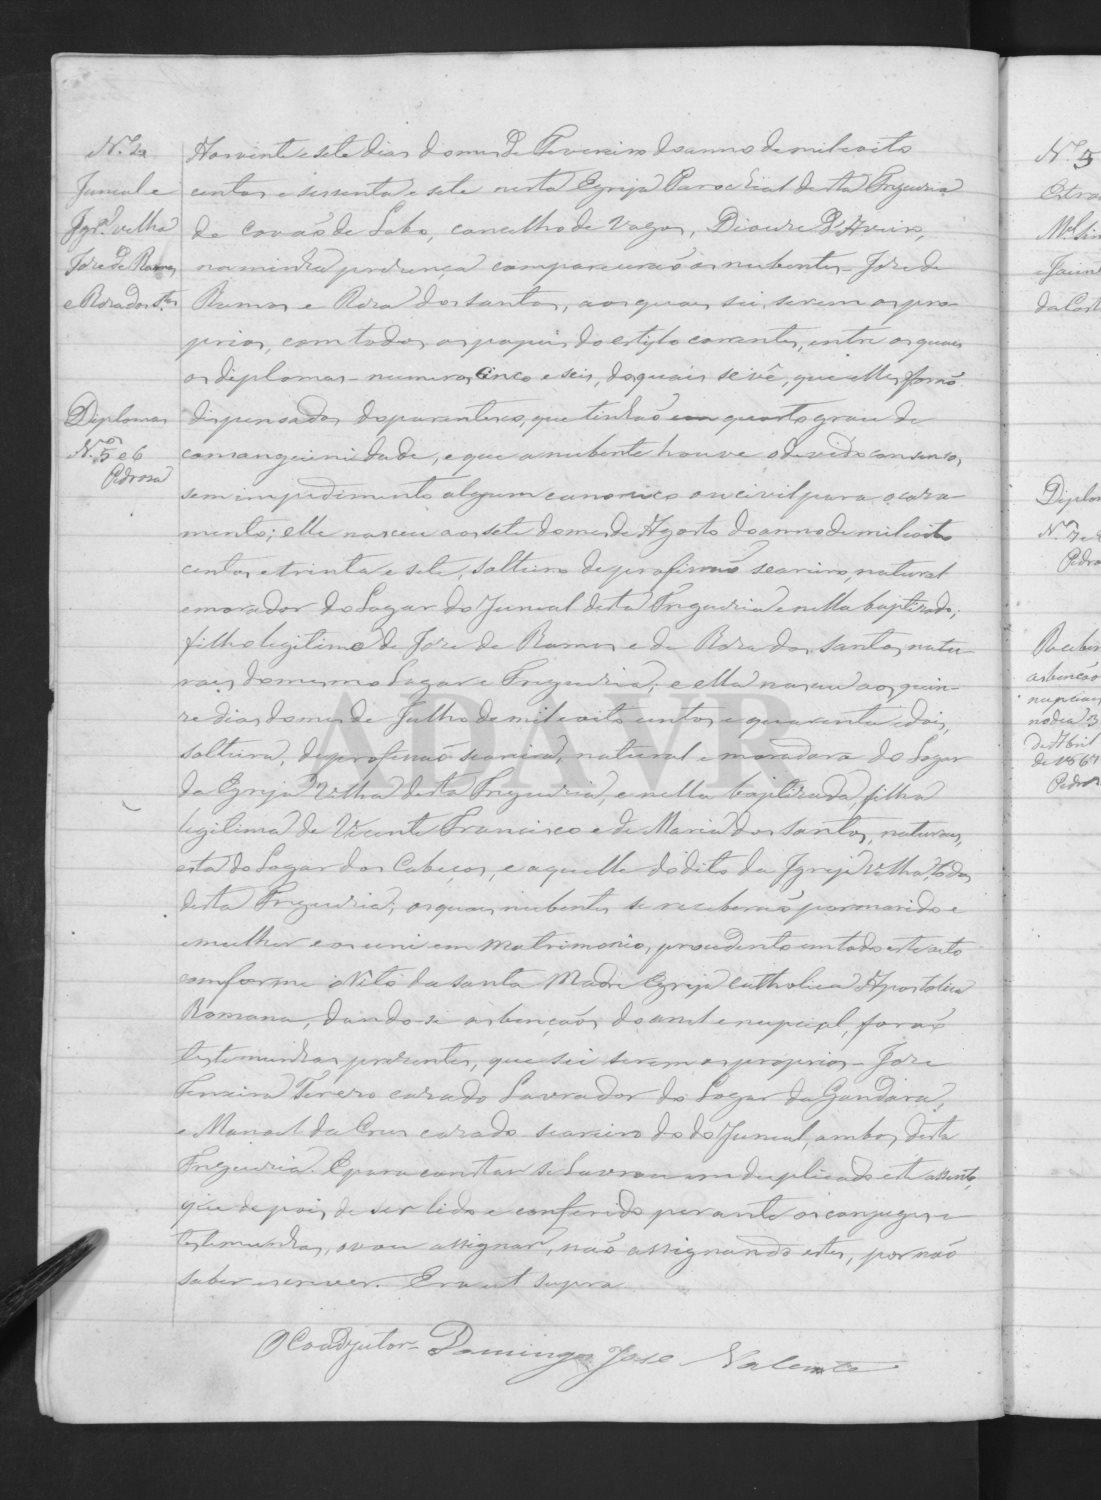 Juncal e
Igr.ª velha
José de Ramos
e Rosa dos S.tos
Diplomas
N.os 5 e 6
Pedrosa
Aos vinte e sete dias do mes de Fevereiro do anno de mil e oito
centos e sessenta e sete nesta Egreja Parochial desta Freguesia
de Covão de Lobo, concelho de Vagos, Diocese d'Aveiro,
na minha presença comparecerão os nubentes - José de
Ramos e Rosa dos Santos, aos quaes sei, serem os pro-
prios, com todos os papeis do estylo correntes, entre os quaes
os diplomas - numeros cinco e seis, dos quais se vê, que elles forão
dispensados do parentesco, que tinhão em quarto grau de
consanguinidade, e que a nubente houve o devido consenso,
sem impedimento algum canonico ou civil para o casa-
mento; elle nasceu aos sete do mes de Agosto do anno de mil e oito
centos e trinta e sete, solteiro de profissão seareiro, natural
e morador do Lugar do Juncal desta Freguesia e nella baptizado,
filho legitimo de José de Ramos e de Rosa dos Santos, natu-
raes do mesmo Lugar e Freguesia; e ella nasceu aos quin-
ze dias do mes de Julho de mil e oito centos e quarenta e dois,
solteira, de profissão seareira, natural e moradora do Lugar
da Egreja Velha desta Freguesia, e nella baptizada, filha
legitima de Vicente Francisco e de Maria dos Santos, naturaes,
esta do Lugar dos Cabeços, e aquelle do dito da Igreja Velha, todos
desta Freguesia; os quaes nubentes se receberão por marido e
e mulher e os uni em Matrimonio, procedendo em todo este acto
conforme o Rito da Santa Madre Egreja Catholica Apostolica
Romana, dando-se as bençaõs do anel e nupcial, forão
testemunhas presentes, que sei serem os proprios - José
Ferreira Tereso casado Lavrador do Lugar da Gandara,
e Manoel da Crus casado seareiro do do Juncal, ambos desta
Freguesia. E para constar se Lavrou em duplicado este assento,
que depois de ser lido e conferido perante os conjuges e
testemunhas, o vou assignar, não assignando estes, por não
saber escrever. Era ut supra
O Coadjutor - Domingos José Valente
N.º 5
Diplo
N.os 7 e
Pedro
Receber
as bençaõ
nupciaes
no dia 3
de Abril
de 1867
Pedro
ADAVR